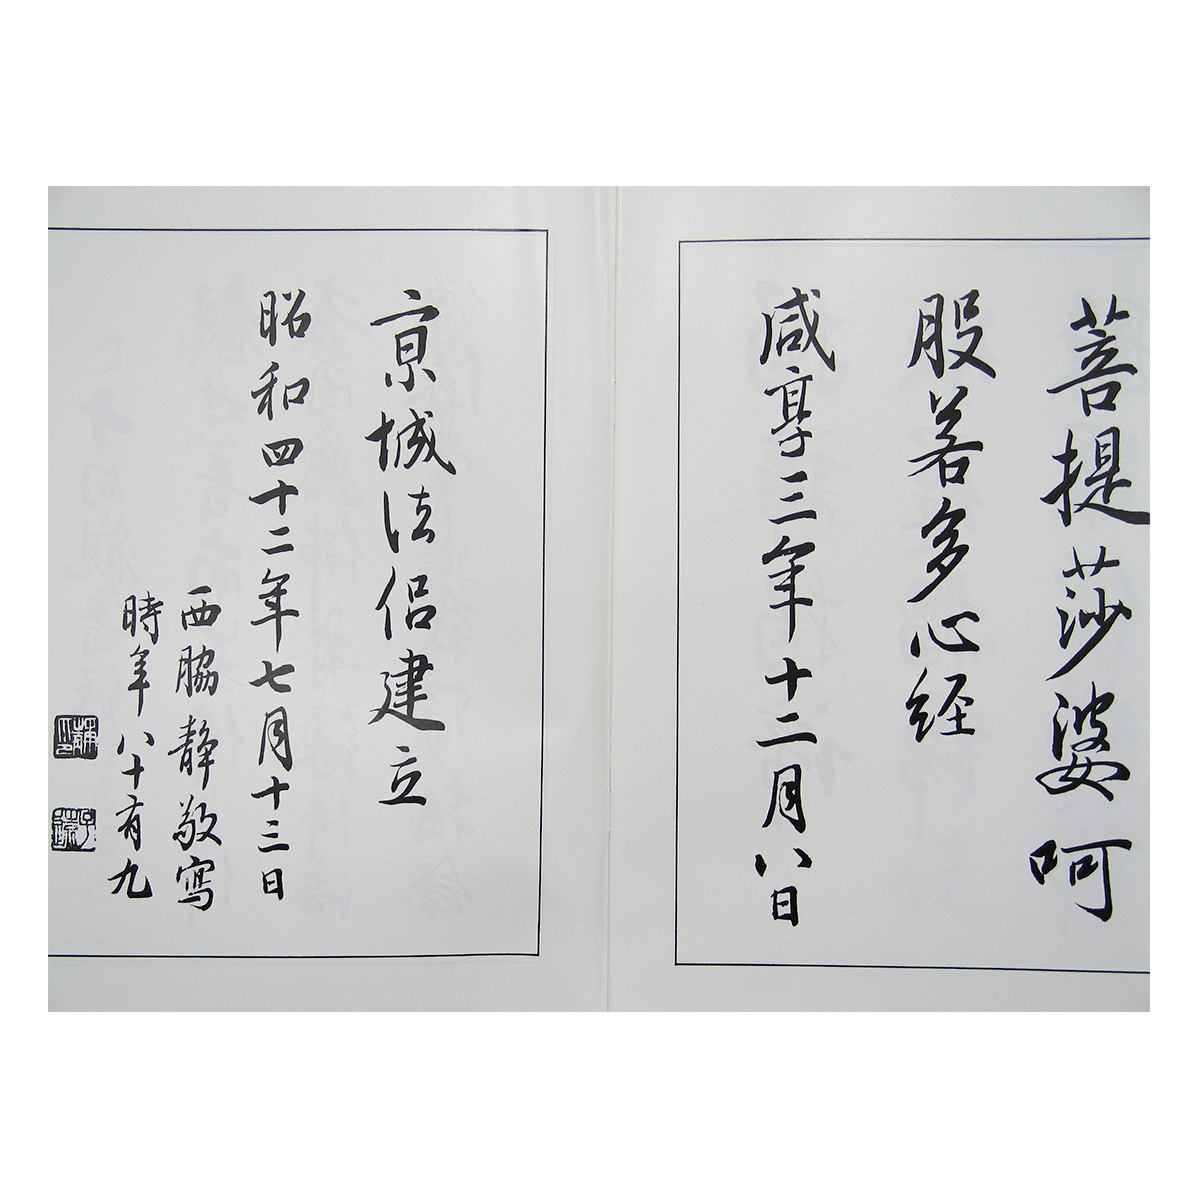 菩提莎婆呵
般若多心経
咸享三年十二月八日
京城法侶建立
昭和四十二年七月十三日
西脇静敬寫
時年八十有九